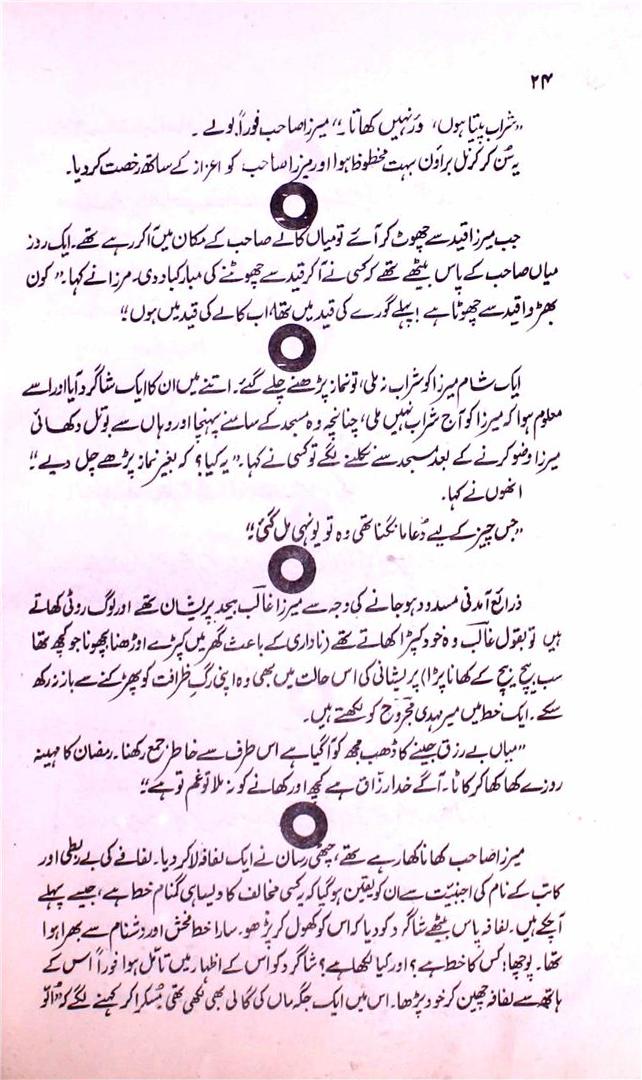 ۲۴
"شراب پیتا ہوں، سؤر نہیں کھاتا۔" میرزا صاحب فوراً بولے۔
یہ سُن کر کرنل براؤن بہت محظوظ ہوا اور میرزا صاحب کو اعزاز کے ساتھ رخصت کر دیا۔
جب میرزا قید سے چھوٹ کر آئے تو میاں کالے صاحب کے مکان میں آکر رہے تھے۔ ایک روز
میاں صاحب کے پاس بیٹھے تھے کہ کسی نے آکر قید سے چھوٹنے کی مبارکباد دی۔ مرزا نے کہا۔ "کون
بھڑوا قید سے چھوٹا ہے! پہلے گورے کی قید میں تھا، اب کالے کی قید میں ہوں!"
ایک شام میرزا کو شراب نہ ملی، تو نماز پڑھنے چلے گئے۔ اتنے میں ان کا ایک شاگرد آیا اور اسے
معلوم ہوا کہ میرزا کو آج شراب نہیں ملی، چنانچہ وہ مسجد کے سامنے پہنچا اور وہاں سے بوتل دکھائی
میرزا وضو کرنے کے بعد مسجد سے نکلنے لگے تو کسی نے کہا۔ "یہ کیا؟ کہ بغیر نماز پڑھے چل دیے!"
انھوں نے کہا۔
"جس چیز کے لیے دُعا مانگنا تھی وہ تو یونہی مل گئی!"
ذرائع آمدنی مسدود ہو جانے کی وجہ سے میرزا غالب بیحد پریشان تھے اور لوگ روٹی کھاتے
ہیں تو بقول غالب وہ خود کپڑا کھاتے تھے (ناداری کے باعث گھر میں کپڑے اوڑھنا بچھونا جو کچھ تھا
سب بیچ بیچ کے کھانا پڑا) پریشانی کی اس حالت میں بھی وہ اپنی رگِ ظرافت کو پھڑکنے سے باز نہ رکھ
سکے۔ ایک خط میں میر مہدی مجروح کو لکھتے ہیں۔
"میاں بے رزق جینے کا ڈھب مجھ کو آگیا ہے اس طرف سے خاطر جمع رکھنا۔ رمضان کا مہینہ
روزے کھا کھا کر کاٹا۔ آگے خدا رزّاق ہے کچھ اور کھانے کو نہ ملا تو غم تو ہے!"
میرزا صاحب کھانا کھا رہے تھے، چٹھی رسان نے ایک لفافہ لا کر دیا۔ لفافے کی بے ربطی اور
کاتب کے نام کی اجنبیت سے ان کو یقین ہو گیا کہ یہ کسی مخالف کا ویسا ہی گمنام خط ہے، جیسے پہلے
آچکے ہیں۔ لفافہ پاس بیٹھے شاگرد کو دیا کہ اس کو کھول کر پڑھو۔ سارا خط فحش اور دشنام سے بھرا ہوا
تھا۔ پوچھا؛ کس کا خط ہے؟ اور کیا لکھا ہے؟ شاگرد کو اس کے اظہار میں تامّل ہوا فوراً اس کے
ہاتھ سے لفافہ چھین کر خود پڑھا۔ اس میں ایک جگہ ماں کی گالی بھی لکھی تھی مُسکرا کر کہنے لگے کہ "اُلّو